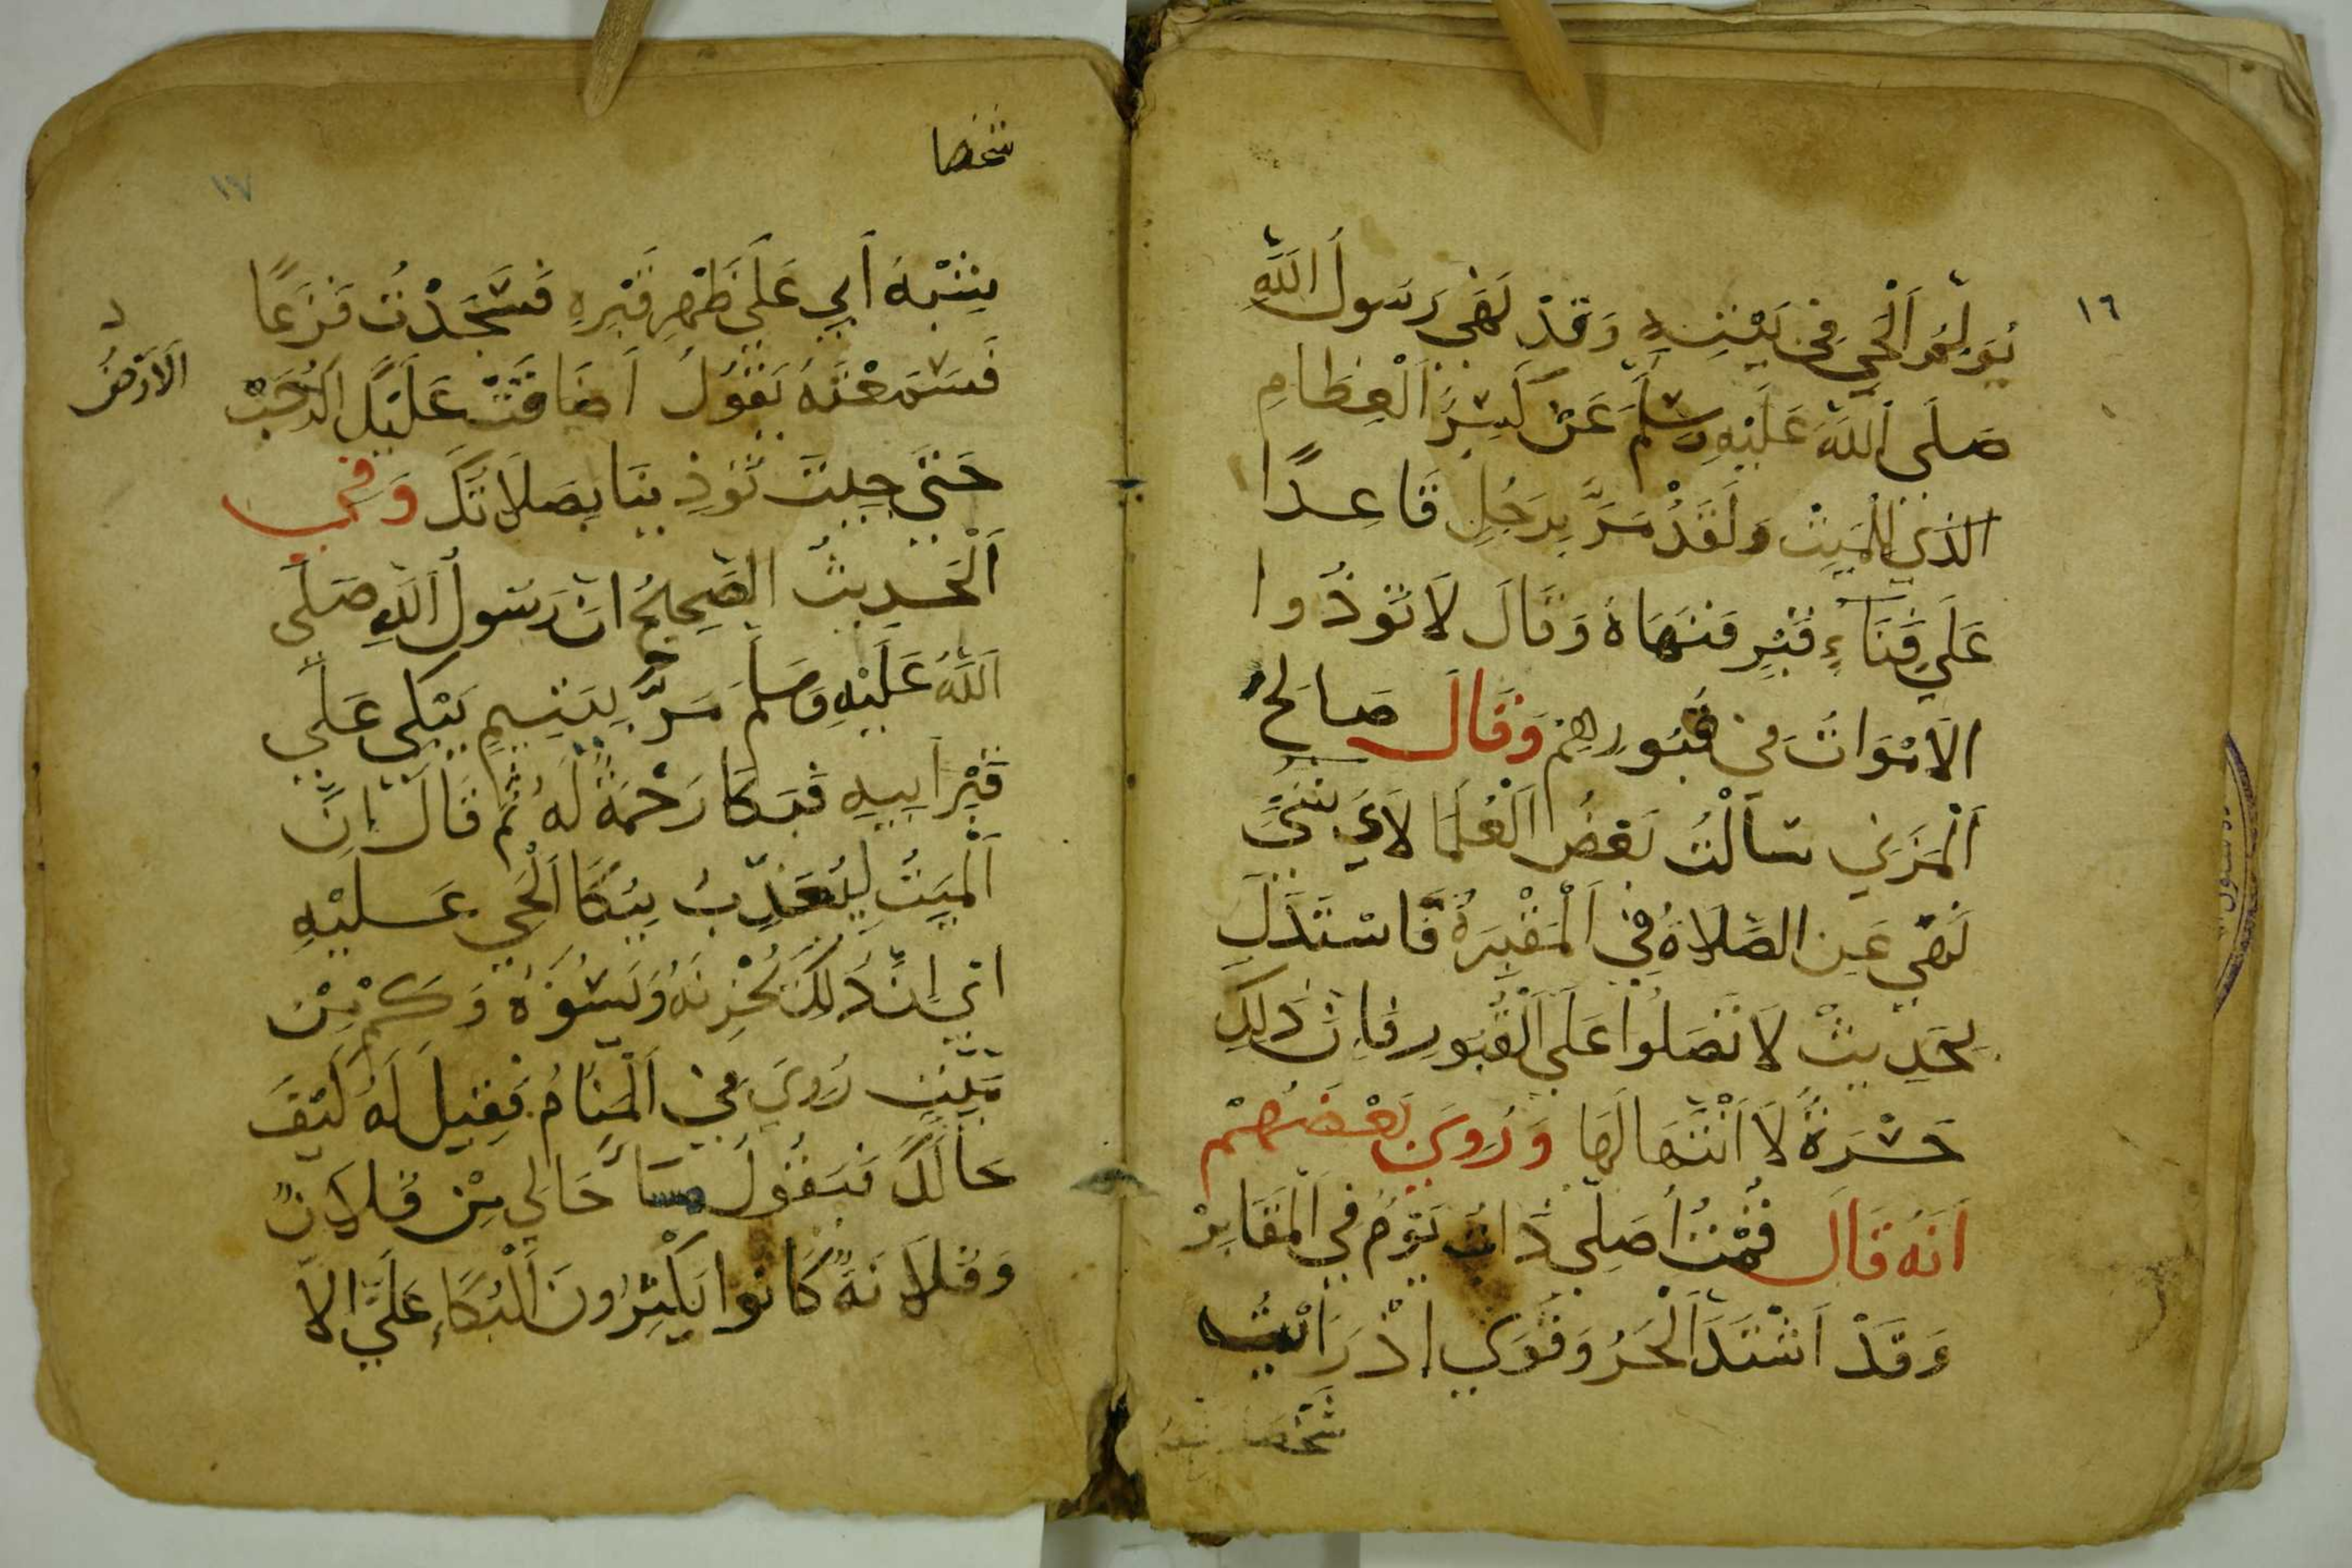 ١٦
يُولِمُو الْحَي فِي بَيْتِهِ وَقَدْ نَهَي رَسُولُ اللَّهِ
صَلَى اللَّهُ عَلَيْهِ وَسَلَّمَ عَنْ كَسِرَّ الْعِظَامِ
الذي لِلْمَيِتْ وَلَقَدْ مَرَّ بِرَجُلِ قَاعِدًا
عَلَي فِنَاءٍ قَبْرٍ فَنَهَاهُ وَقَالَ لَا تَوذُوا
الَامْوَاتَ فِي قُبُورِهِمْ وَقَالَ صَالِح
اَلْمَزَنِي سَأَلْتُ بَعْضُ الْعُلَمَا لَايَ شَيْ
نَهَي عَنِ الصَّلَاةُ فِي الْمَقْبِرَةُ فَاسْتَدَلَ
بِحَدِيثْ لَا تَصَلُوا عَلَي الْقُبُورِ فَاِنَّ ذَلِكَ
حَسْرَةً لَا اَنْتَهَا لَهَا وَرُوِيَ بَعْضَهُمْ
اَنَهُ قَالَ قُمْتُ اُصَلِي ذَاتَ يَوْمُ فِي الْمَقَابِرْ
وَقَدْ اَشْتَدَ الْحَرُ وَقَوَي اِذْ رَاَيْتُ
شَخْصًا
شخصا
١٧
يشْبَهُ أَبِي عَلَي ظَهْرِ قَبْرِهِ فَسَجَدْتُ فَزَعًا
فَسَمِعْتَهُ يَقُولُ اَضَاقَتْ عَلَيْكَ الرُحَبْ
اَلَارْضُ
حَتَي جِيتَ تَوذِينَا بِصَلَاتَكَ وَفِي
اَلْحَدِيثُ الصَحِيحُ اَنَ رَسُولُ اللَّهِ صَلَي
اَللَّهُ عَلَيْهِ وَسَلَمَ مَرَّ بِيَتِيمٍ يَبْكِي عَلَي
قَبْرِ اَبِيهِ فَبَكَا رَحْمَةً لَهُ ثُمَّ قَالَ اِنَّ
اَلْمَيِتُ لَيُعَذَّبُ بِبُكَا الْحَي عَلَيْهِ
اي اِنَّ ذَلِكَ يُحْزِنَهُ وَيَسُوَهُ وَكَمْ مِنْ
مَيِتٍ رُوِيَ فِي الْمَنَامُ فَقِيلَ لَهُ كَيْفَ
حَالَكَ فَيَقُولُ سَاَ حَالِي مِنْ فُلَانً
وَفُلَانَةً كَانُوا يَكْثِرُونَ الْبُكَاءِ عَلَيَّ الَا